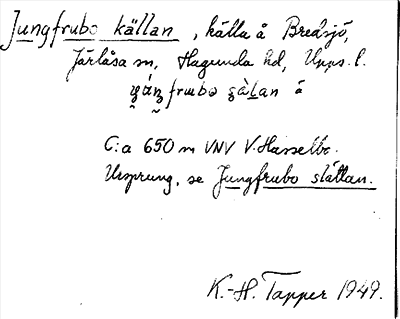 Jungfrubo källan, källa å Bredsjö,
Järlåsa sn, Hagunda hd, Upps. l.
C:a 650 m VNV V. Hasselbo.
Ursprung, se Jungfrubo slåttan.
K.-H. Tapper 1949.